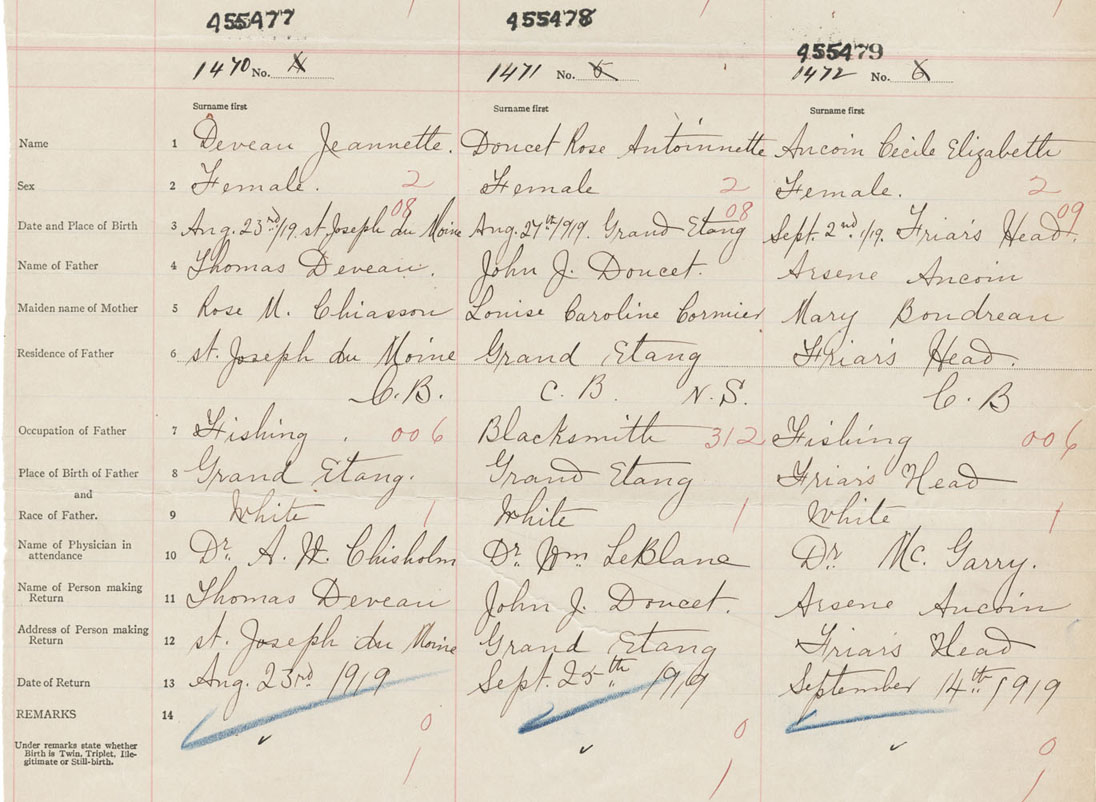 455477 455478 455479
1470 No. 4 1471 No. 5 1472 No. 6
Surname first Surname first Surname first
Name 1 Deveau Jeannette. Doucet Rose Antoinnette Aucoin Cecile Elizabeth
Sex 2 Female. 2 Female 2 Female. 2
08 08 09
Date and Place of Birth 3 Aug. 23rd/19. st. Joseph du Moine Aug. 27th/1919. Grand Etang Sept. 2nd 1/19. Friar's Head.
Name of Father 4 Thomas Deveau. John J. Doucet. Arsene Aucoin
Maiden name of Mother 5 Rose M. Chiasson Louise Caroline Cormier Mary Boudreau
Residence of Father 6 st. Joseph du Moine Grand Etang Friar's Head.
C.B. C. B N.S. C. B
Occupation of Father 7 Fishing . 006 Blacksmith 312 Fishing 006
Place of Birth of Father 8 Grand Etang. Grand Etang Friar's Head
and
Race of Father. 9 White 1 White 1 White 1
Name of Physician in
attendance 10 Dr. A. W. Chisholm Dr. Wm LeBlanc Dr. Mc. Garry.
Name of Person making
Return 11 Thomas Deveau John J. Doucet. Arsene Aucoin
Address of Person making
Return 12 st. Joseph du Moine Grand Etang Friar's Head
Date of Return 13 Aug. 23rd 1919 Sept. 25th 1919 September 14th 1919
REMARKS 14
0 0 0
Under remarks state whether
Birth is Twin, Triplet, Ille-
gitimate or Still-birth.
1 1 1